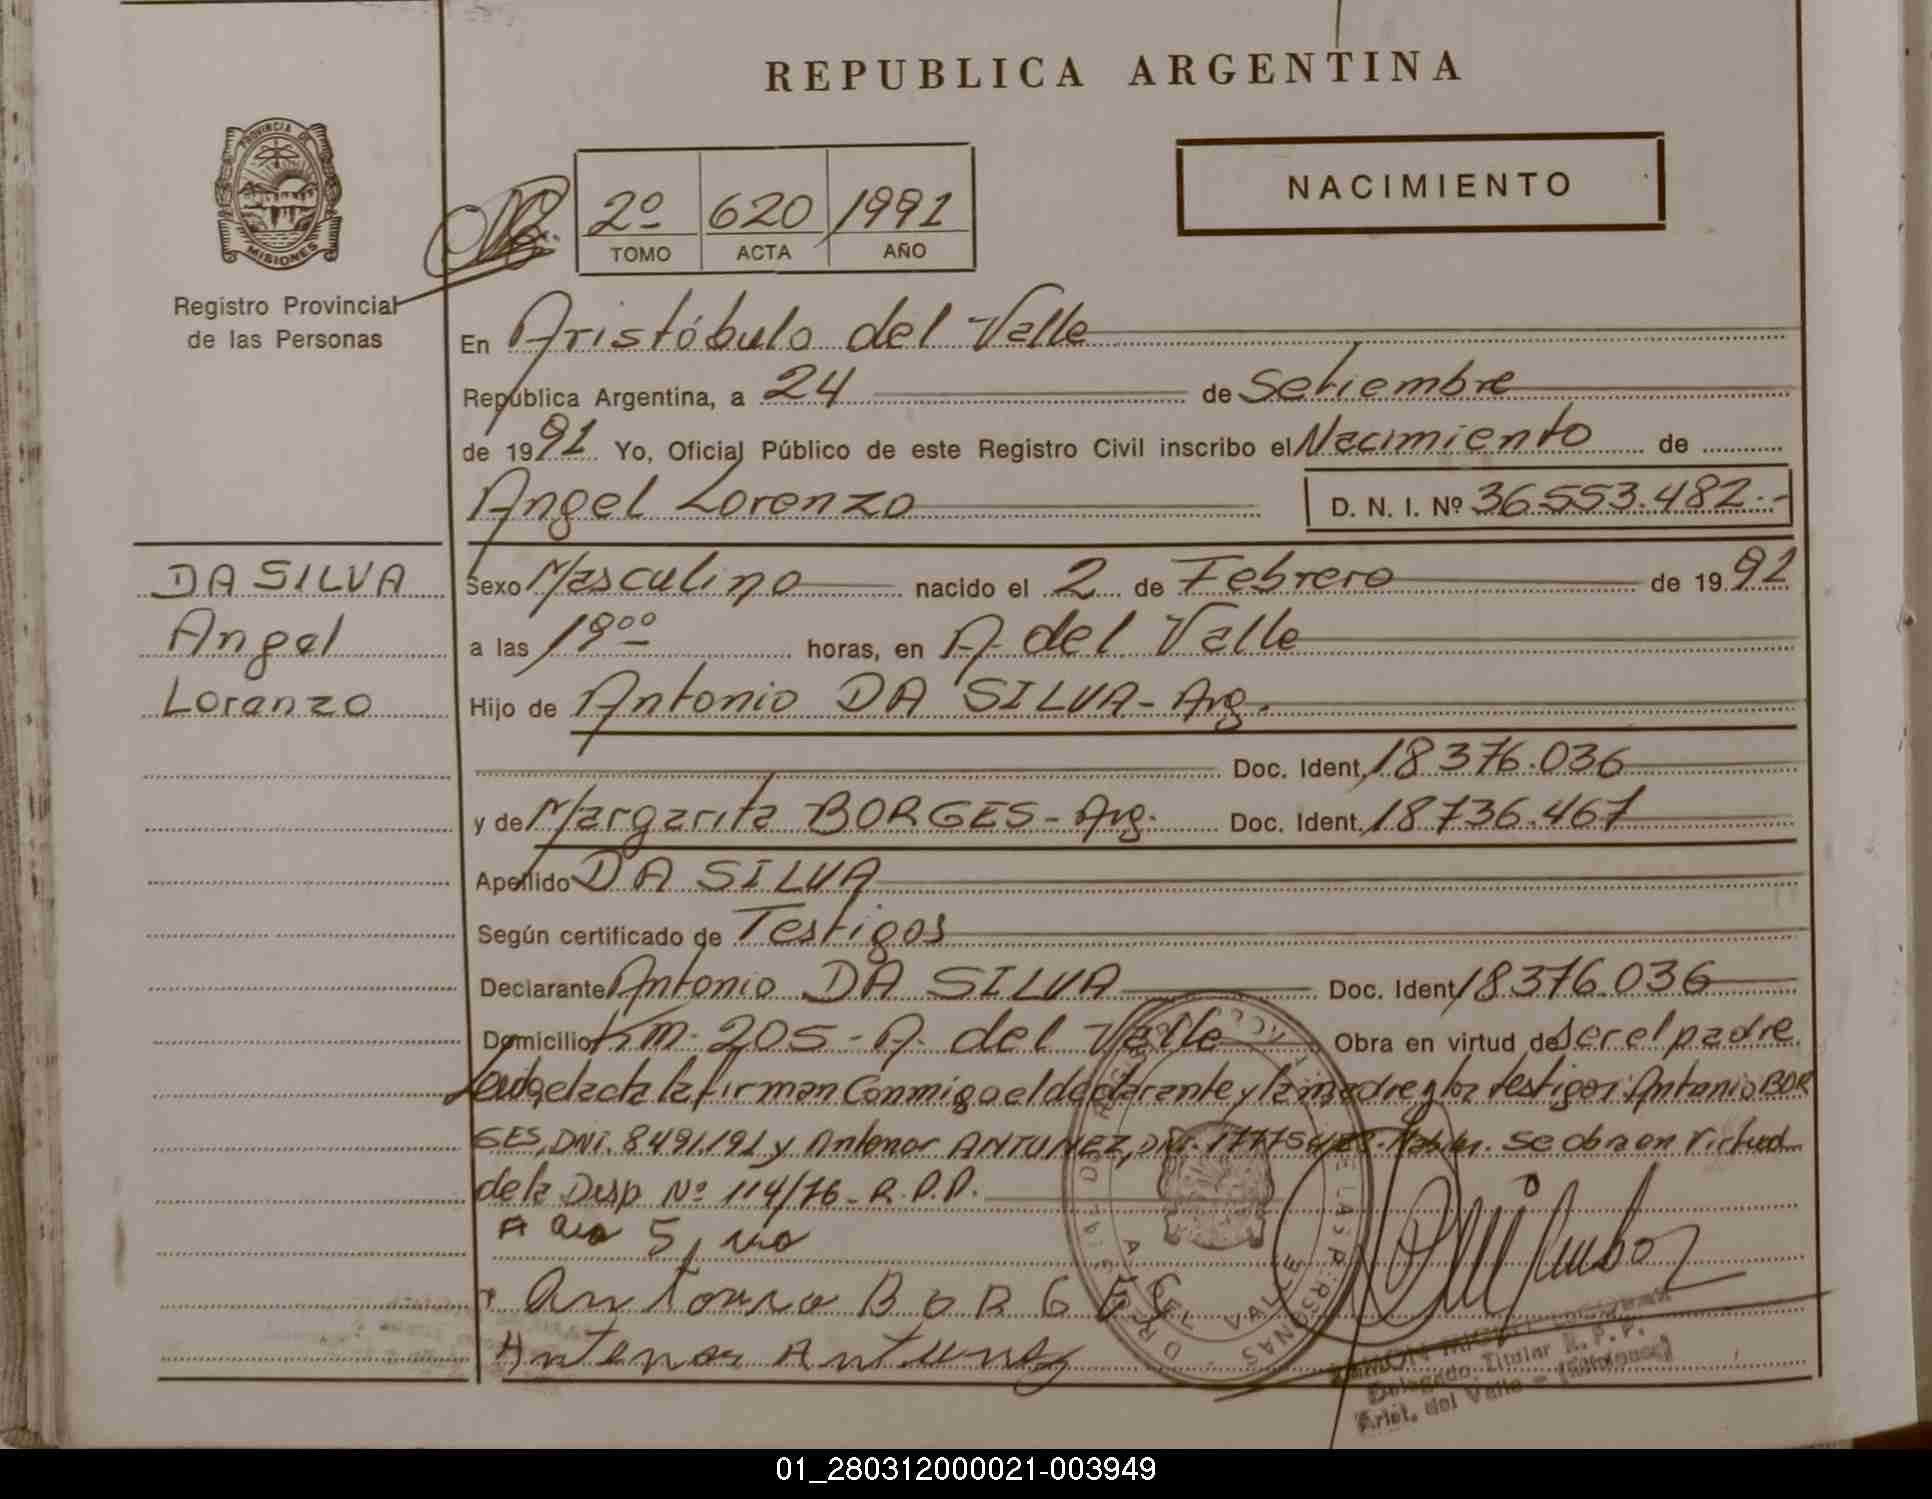 REPUBLICA ARGENTINA
PROVINCIA DE
MISIONES
Registro Provincial
de las Personas
2º 620 1991
TOMO ACTA AÑO
NACIMIENTO
En Aristóbulo del Valle
República Argentina, a 24 de Setiembre
de 1991 Yo, Oficial Público de este Registro Civil inscribo el Nacimiento de
Angel Lorenzo D. N. I. Nº 36.553.482.-
DA SILVA
Angel
Lorenzo
Sexo Masculino nacido el 2 de Febrero de 1991
a las 19⁰⁰ horas, en A. del Valle
Hijo de Antonio DA SILVA - Arg.
Doc. Ident. 18.376.036
y de Margarita BORGES - Arg. Doc. Ident. 18.736.467
Apellido DA SILVA
Según certificado de Testigos
Declarante Antonio DA SILVA Doc. Ident. 18.376.036
Domicilio Km. 205 - A. del Valle Obra en virtud de ser el padre.
Leida el acta la firman conmigo el declarante y la madre y los testigos: Antonio BOR
GES, DNI. 8.491.191 y Antenor ANTUNEZ, DNI. Se obra en virtud
de la Disp. Nº 114/76 - R.P.P.
Antonio BORGES
Antenor Antunez
Delegado Titular R. P. P.
Arist. del Valle - (Misiones)
01_280312000021-003949